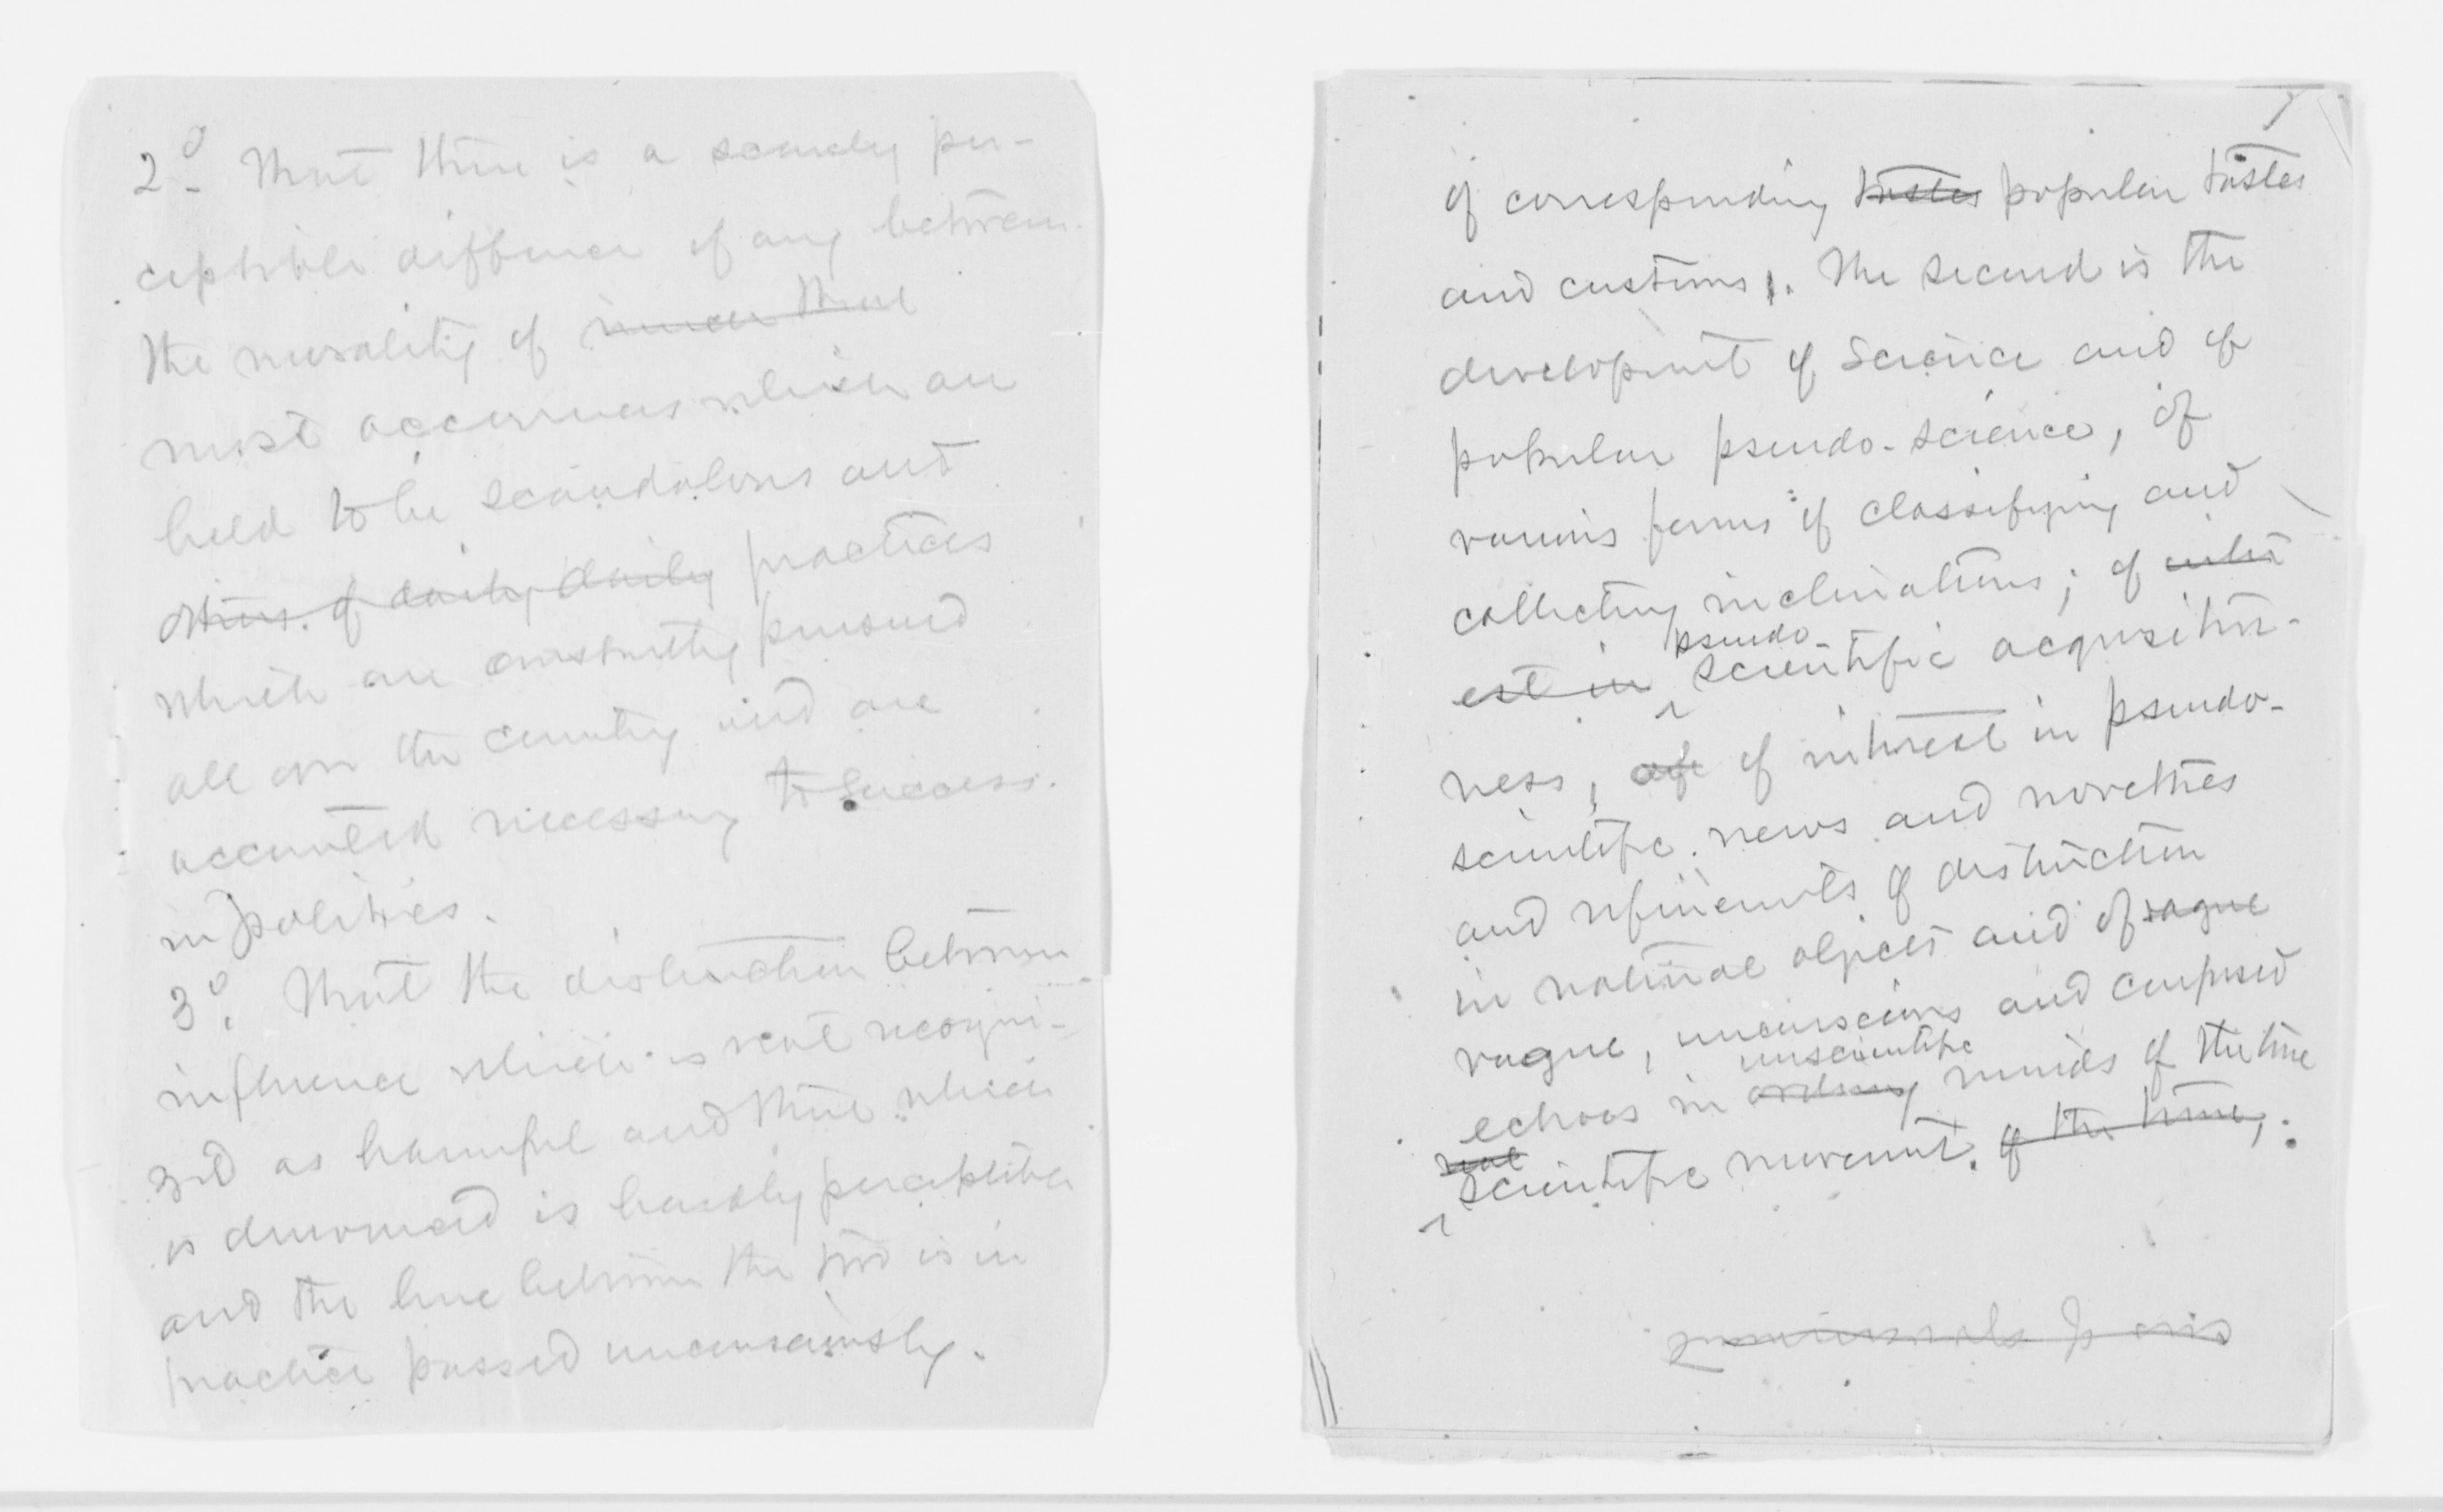 2º That there is a scarcely per-
ceptible difference if any between
the morality of
most occurrences which are
held to be scandalous and
others. of daily daily practices
which are constantly pursued
all over the country and are
accounted necessary to success
in politics.
3º. That the distinction between
influence which is not recogni-
zed as harmful and that which
is denounced is hardly perceptible
and the line between the two is in
practice passed unconsciously.
7
of corresponding tastes popular tastes
and customs. The second is the
development of Science and of
popular pseudo-science, of
various forms of classifying and
collecting inclinations; of inter
pseudo-
est in scientific acquisitive-
ness, of interest in pseudo-
scientific news and novelties
and refinements of distinction
in natural objects and of vague
vague, unconscious and confused
unscientific
echoes in ordinary minds of the true
real
scientific movement. of the time,